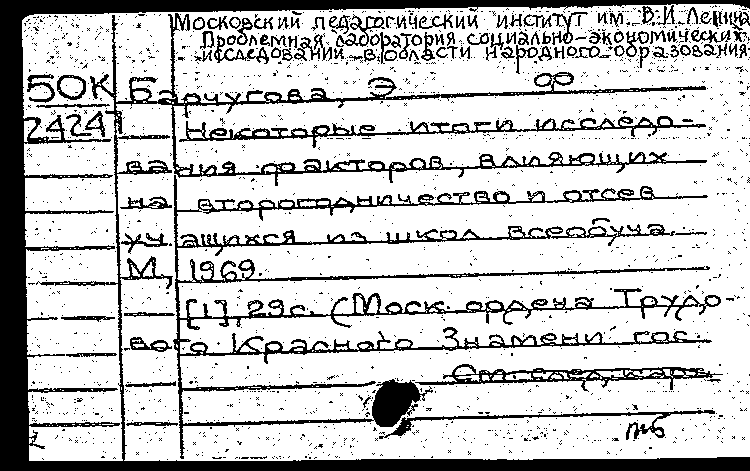 Московский педагогический институт им. В.И. Ленина
Проблемная лаборатория социально-экономических
исследований в области народного образования
50К Барчугова, Э ф
24247 Некоторые итоги исследо-
вания факторов, влияющих
на второгодничество и отсев
учащихся из школ всеобуча.
М., 1969.
[1], 29с. (Моск. ордена Трудо-
вого Красного Знамени гос.
См. след. карт.